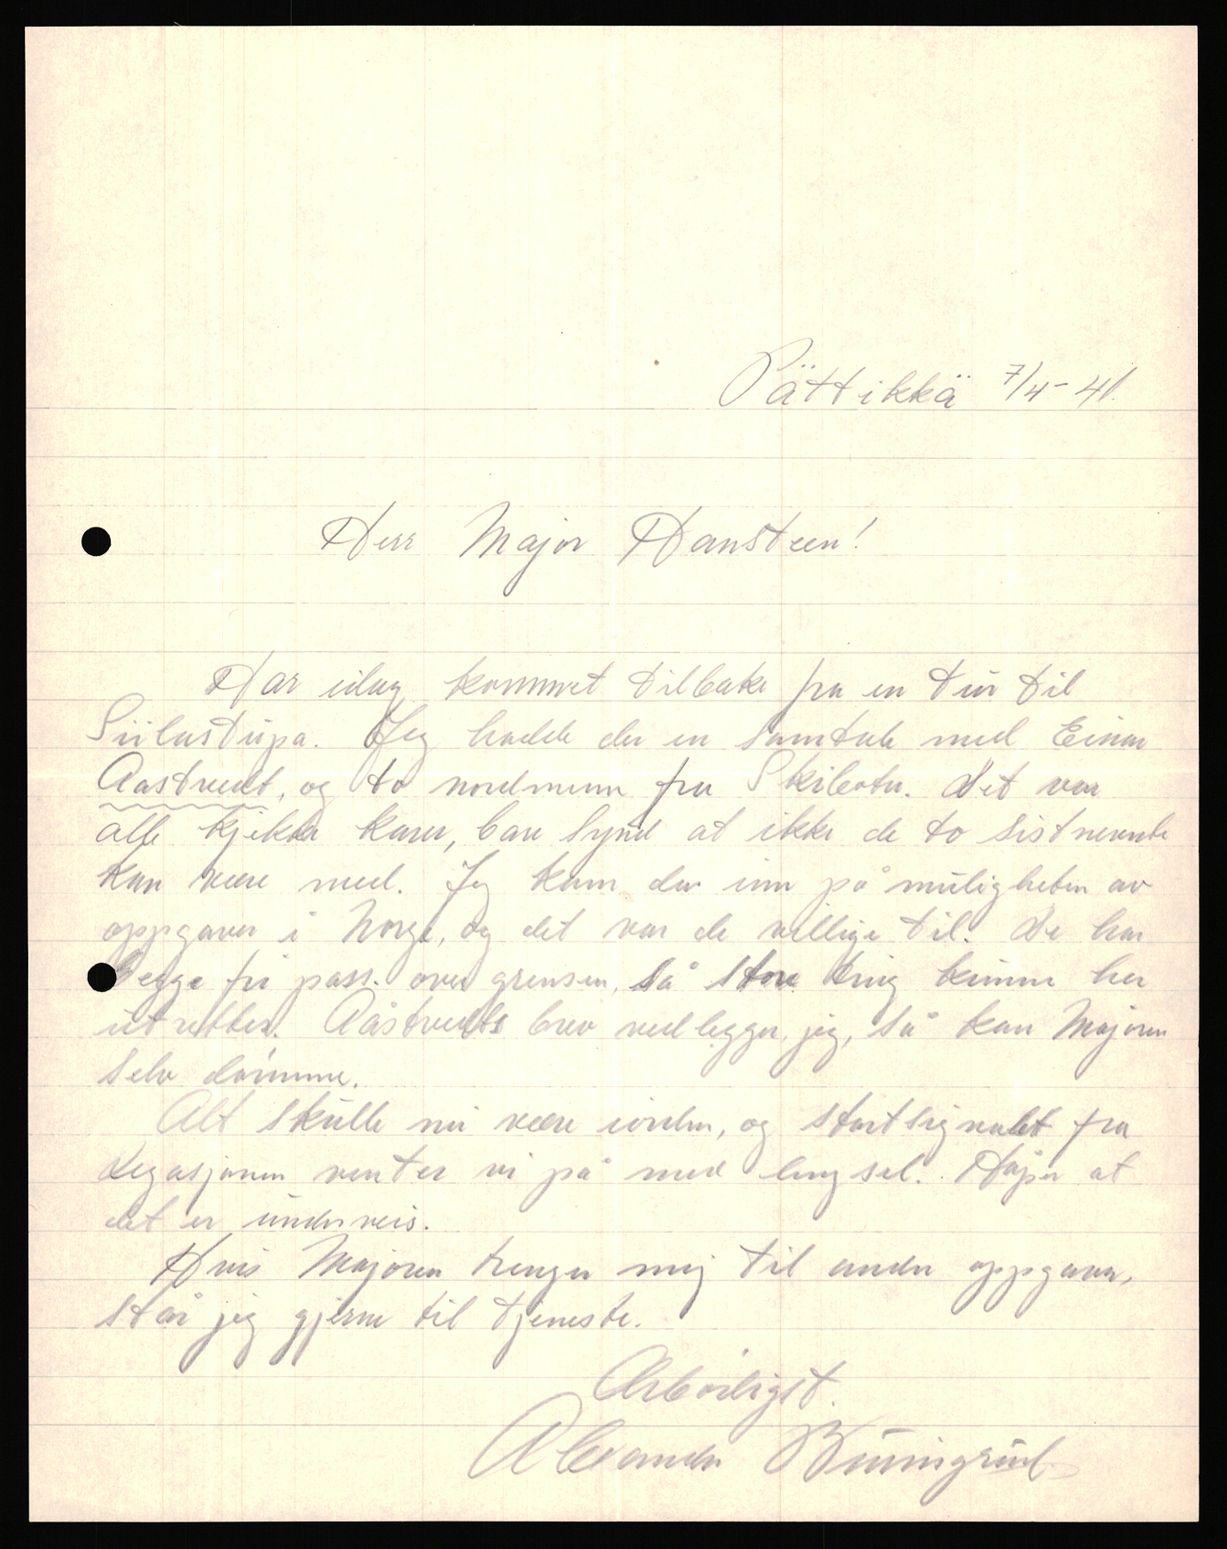 Pättikkä 7/4-41.
Herr Major Hansteen!
Har idag kommet tilbake fra en tur til
Siilastupa. Jeg hadde der en samtale med Einar
Aastvedt, og to nordmenn fra Skibotn. Det var
alle kjekke karer, bare synd at ikke de to sistnevnte
kan være med. Jeg kom der inn på muligheten av
oppgaver i Norge, og det var de villige til. De har
begge fri pass. over grensen, så store ting kunne her
utrettes. Aastvedts brev vedlegger jeg, så kan Majoren
selv dømme.
Alt skulle nu være iorden, og startsignalet fra
Legasjonen venter vi på med lengsel. Håper at
det er underveis.
Hvis Majoren trenger mig til andre oppgaver,
står jeg gjerne til tjeneste.
Ærbødigst.
Alexander